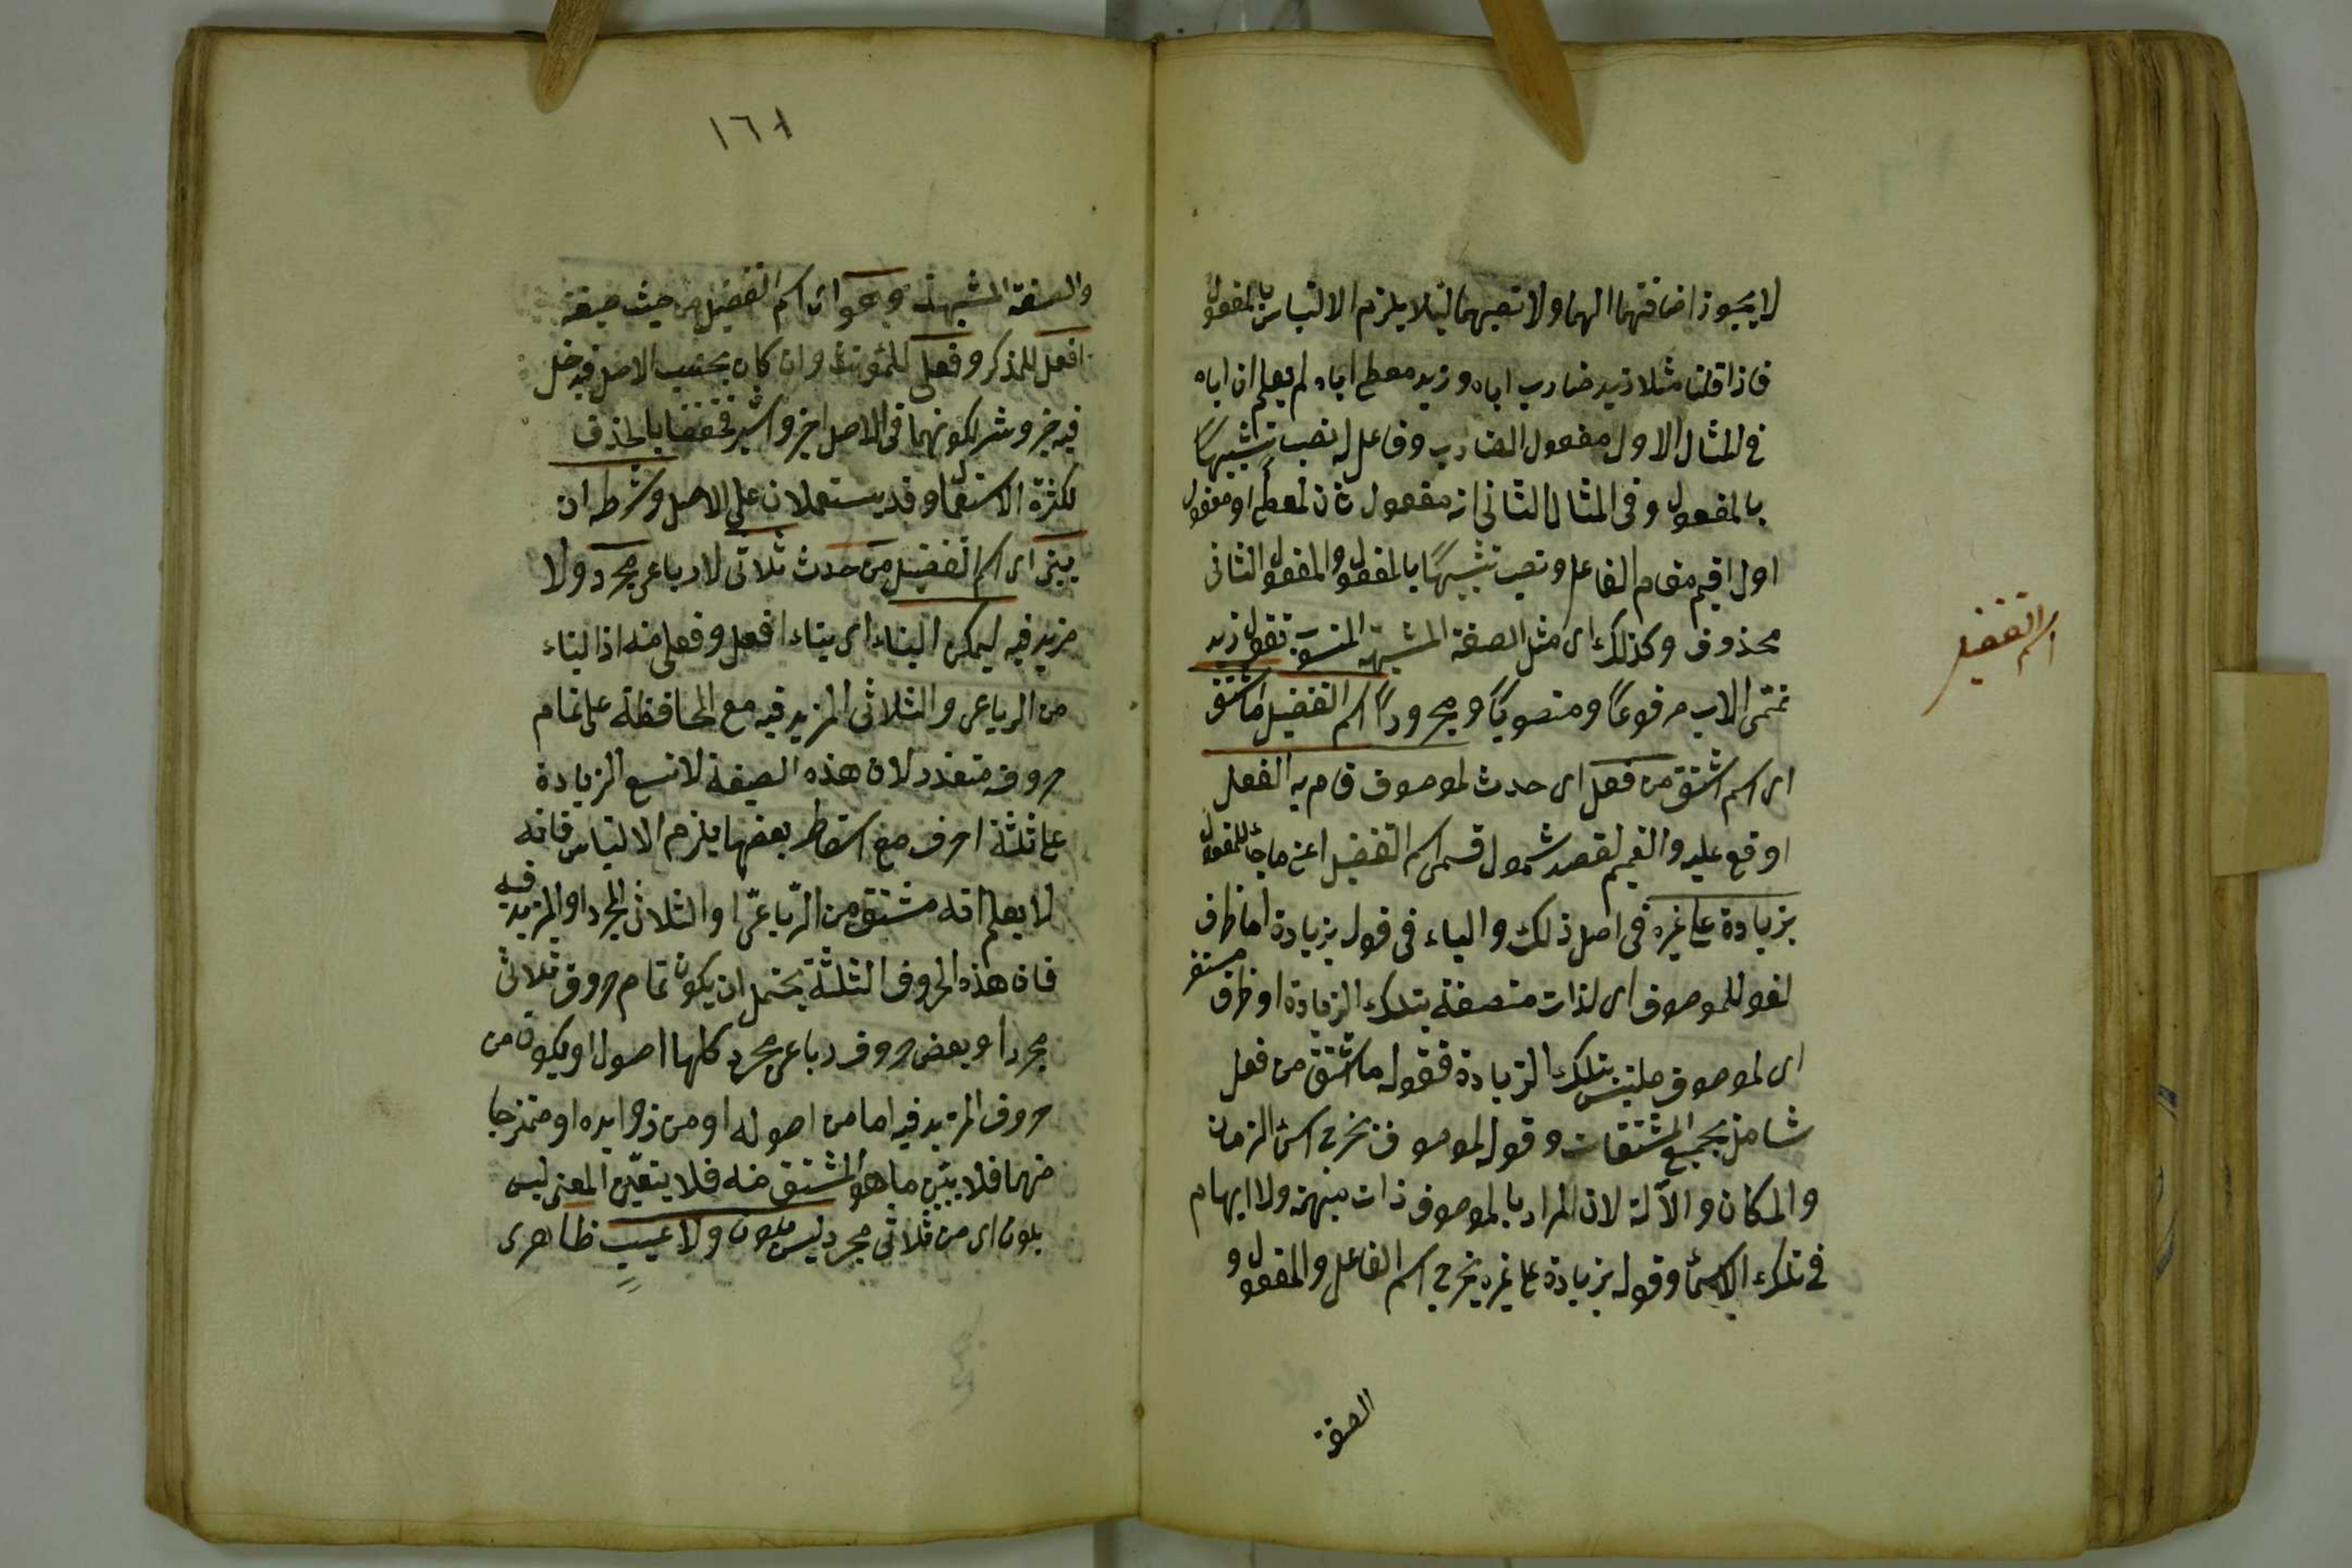 لا يجوز اضافتهما اليهما ولا نصبهما ليلا يلزم الالتباس بالمفعول
فاذا قلت مثلا زيد ضارب اباه وزيد معطى اباه لم يعلم ان اباه
في المثال الاول مفعول الضارب او فاعل له نصب تشبيهاً
بالمفعول وفي المثال الثاني انه مفعول ثان لمعطى او مفعول
اول اقيم مقام الفاعل ونصب تشبيهاً بالمفعول والمفعول الثاني
محذوف وكذلك اى مثل الصفة المشبهة المنسوب تقول زيد
تميمى الاب مرفوعاً ومنصوباً ومجروراً اسم التفضيل ما اشتق
اى اسم اشتق من فعل اى حدث لموصوف قام به الفعل
او وقع عليه والتعميم لقصد شمول قسمى اسم التفضيل اعنى ما جاء للمفعول
بزيادة على غيره فى اصل ذلك والباء فى قوله بزيادة اما ظرف
لغو للموصوف اى لذات متصفة بتلك الزيادة او ظرف مستقر
اى لموصوف ملتبس بتلك الزيادة فقوله ما اشتق من فعل
شامل بجميع المشتقات وقوله لموصوف يخرج اسمى الزمان
والمكان والآلة لان المراد بالموصوف ذات مبهمة ولا ابهام
في تلك الاسما وقوله بزيادة على غيره يخرج اسم الفاعل والمفعول و
الصفة
اسم التفضيل
١٦١
والصفة المشبهة وهو اى اسم التفضيل من حيث صيغة
افعل للمذكر وفعلى للمؤنث وان كان بحسب الاصل فيدخل
فيه خير وشر لكونهما فى الاصل اخير واشر فخففا بالحذف
لكثرة الاستعمال وقد يستعملان على الاصل وشرطه ان
يبنى اى اسم التفضيل من حدث ثلاثى لا رباعى مجرد ولا
مزيد فيه ليمكن البناء اى بناء افعل وفعلى منه اذ البناء
من الرباعى والثلاثى المزيد فيه مع المحافظة على تمام
حروفه متعذر لان هذه الصيغة لا تسع الزيادة
على ثلثة احرف مع اسقاط بعضها يلزم الالتباس فانه
لا يعلم انه مشتق من الرّباعىّ او الثلاثى المجرد او المزيد فيه
فان هذه الحروف الثلثة يحتمل ان يكون تمام حروف ثلاثى
مجرد او بعض حروف رباعى مجرد كلها اصول او يكون من
حروف المزيد فيه اما من اصوله او من زوايده او ممتزجا
منهما فلا يتبيّن ما هو المشتق منه فلا يتعيّن المعنى ليس
بلون اى من ثلاثى مجرد ليس بلون ولا عيب ظاهرى